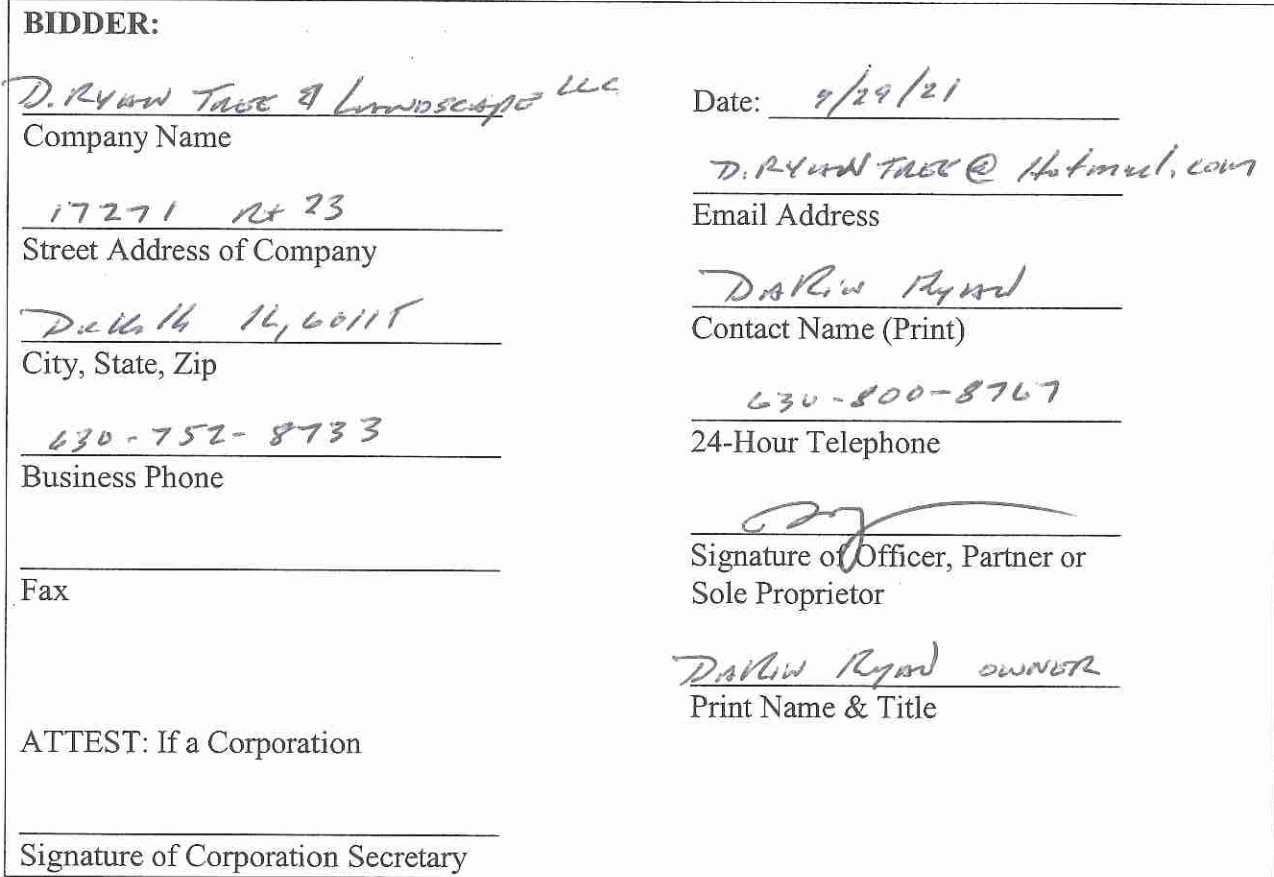 BIDDER:
D. RYAN TREE & LANDSCAPE LLC
Company Name
17271 Rt 23
Street Address of Company
DeKalb IL, 60115
City, State, Zip
630-752-8733
Business Phone
Fax
ATTEST: If a Corporation
Signature of Corporation Secretary
Date: 9/29/21
D.RYANTREE@Hotmail.com
Email Address
DARiN Ryan
Contact Name (Print)
630-800-8767
24-Hour Telephone
Signature of Officer, Partner or
Sole Proprietor
DARiN Ryan OWNER
Print Name & Title